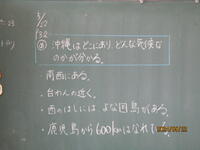 5/17
32
め 沖縄はどこにあり、どんな気候な
のかが分かる。
・南西にある。
・台わんの近く。
・西のはしには よな国島がある。
・鹿児島から600kmはなれてる。